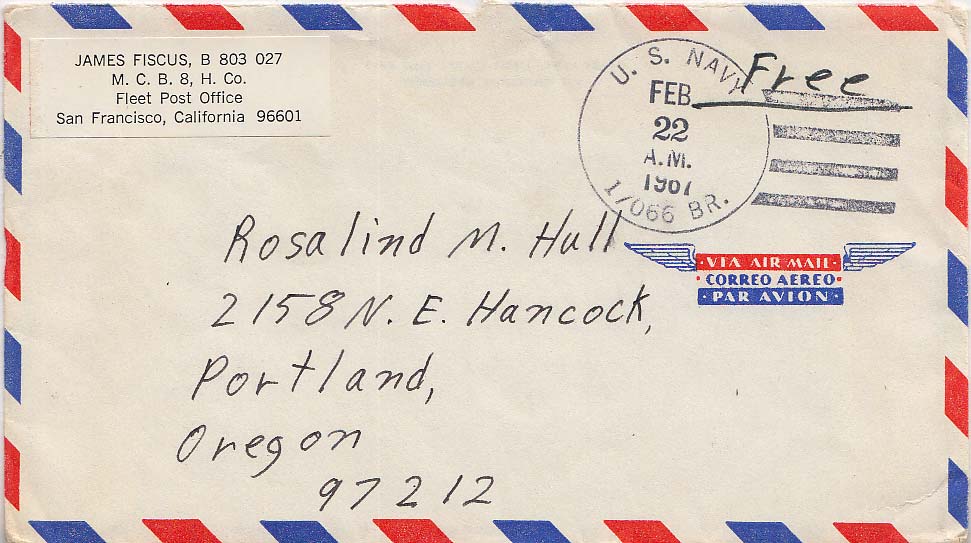 JAMES FISCUS, B 803 027
M. C. B. 8, H. Co.
Fleet Post Office
San Francisco, California 96601
U. S. NAVY
FEB
22
A.M.
1967
17066 BR.
Free
Rosalind M. Hull
2158 N. E. Hancock,
Portland,
Oregon
97212
· VIA AIR MAIL ·
CORREO AEREO
· PAR AVION ·